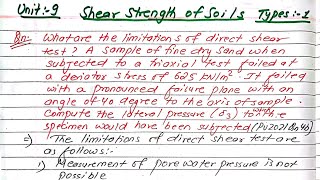 Unit:-9 Shear Strength of Soils Types:-1
Qn:- What are the limitations of direct shear
test? A sample of fine dry sand when
subjected to a triaxial test failed at
a deviator stress of 605 kN/m². It failed
with a pronounced failure plane with an
angle of 40 degree to the axis of sample.
Compute the lateral pressure (σ3) to which the
specimen would have been subjected (PU2021Qn4b)
The limitations of direct shear test are
as follows:-
i) Measurement of pore water pressure is not
possible